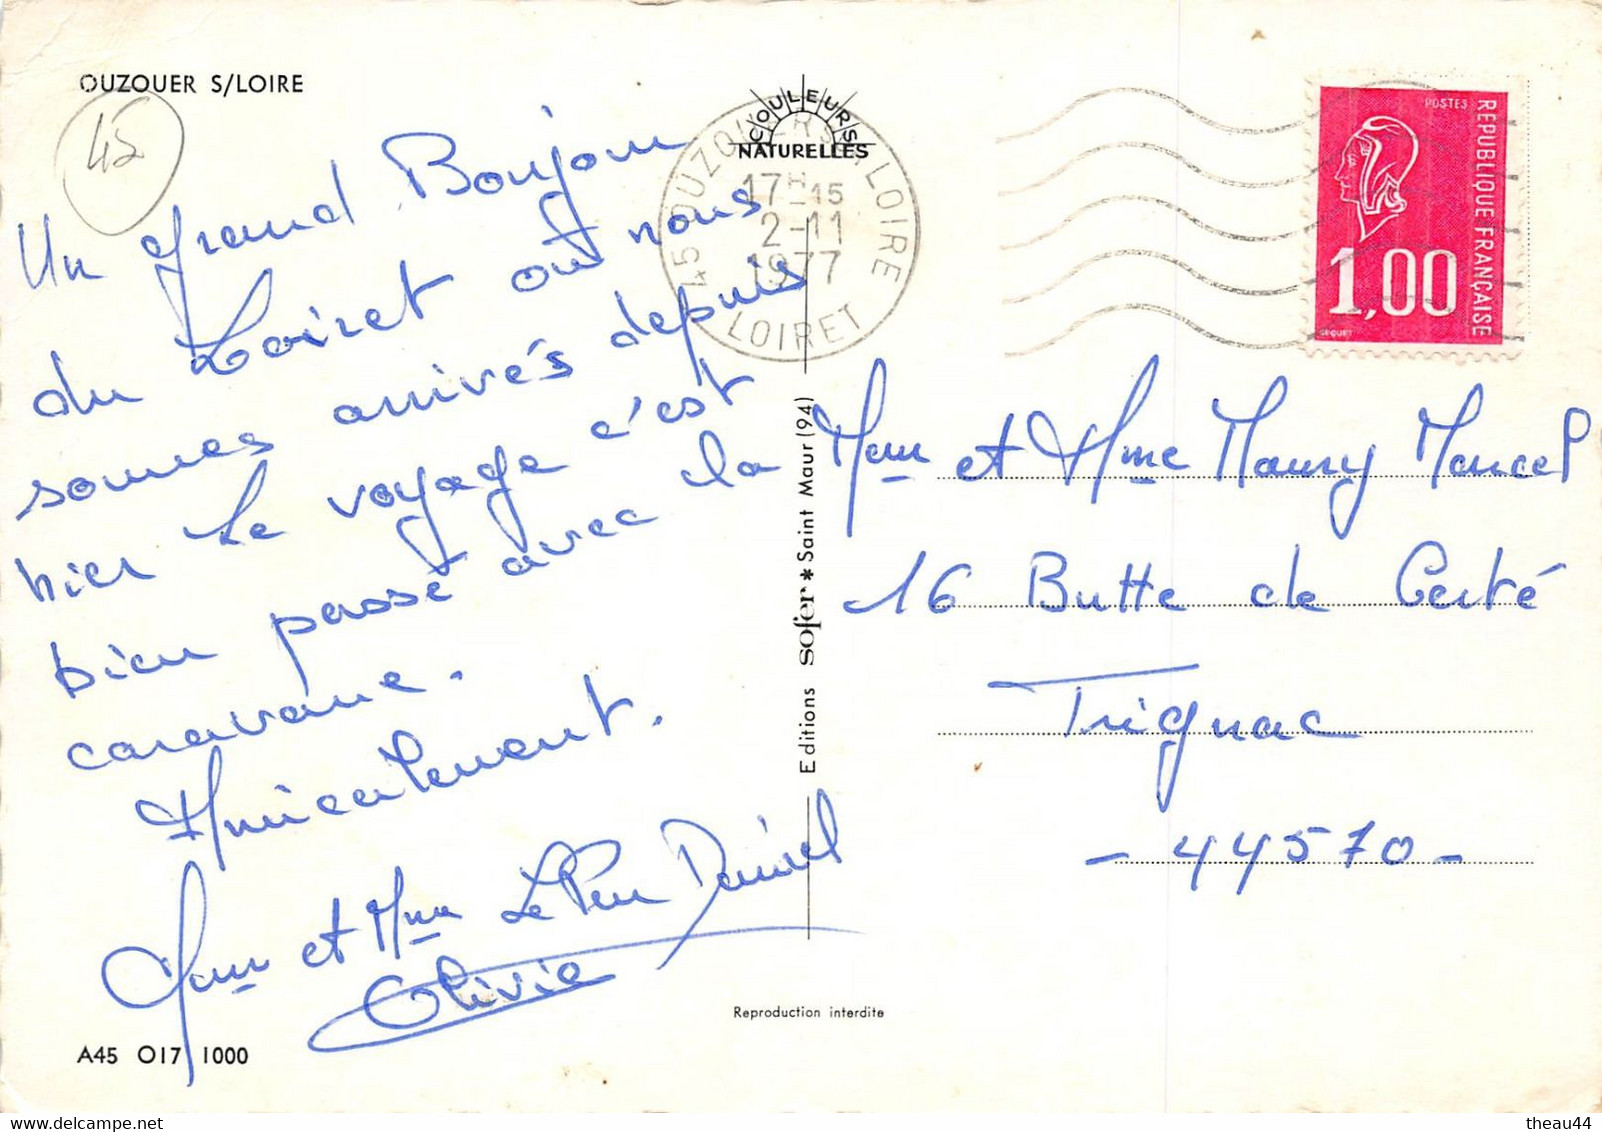 OUZOUER S/LOIRE
45
Un grand Bonjour
du Loiret où nous
somes arrivés depuis
hier Le voyage c'est
bien passé avec la
caravane.
Amicalement.
et Mme Le Daniel
Olivia
A45 O17 1000
COULEURS
NATURELLES
45 OUZOUER S. LOIRE
17H-15
2-11
1977
LOIRET
Editions sofer * Saint Maur (94)
Reproduction interdite
POSTES
REPUBLIQUE FRANÇAISE
1,00
BEQUET
et Mme Maury Marcel
16 Butte de Certé
Trignac
- 44570 -
theau44